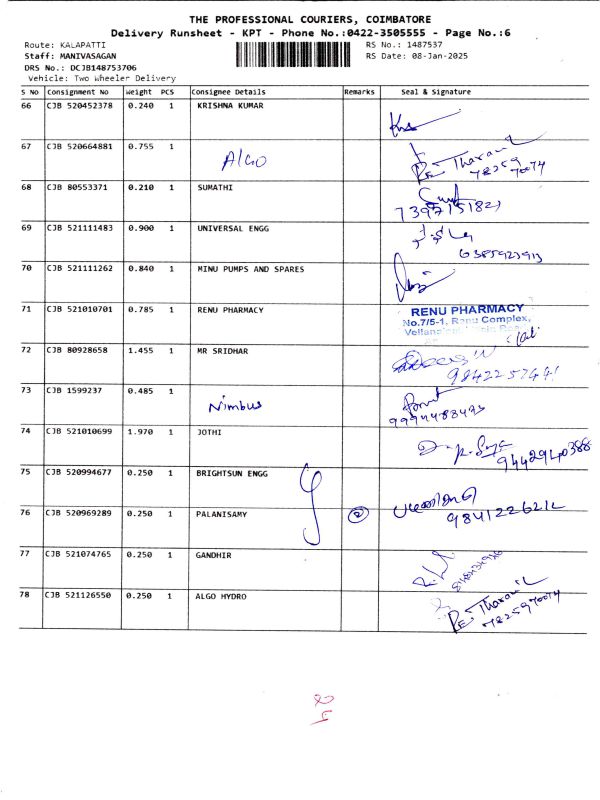 THE PROFESSIONAL COURIERS, COIMBATORE
Delivery Runsheet - KPT - Phone No.:0422-3505555 - Page No.:6
Route: KALAPATTI RS No.: 1487537
Staff: MANIVASAGAN RS Date: 08-Jan-2025
DRS No.: DCJB148753706
Vehicle: Two Wheeler Delivery
S No Consignment No Weight PCS Consignee Details Remarks Seal & Signature
66 CJB 520452378 0.240 1 KRISHNA KUMAR
67 CJB 520664881 0.755 1 Algo Tharani 78259 70074
68 CJB 80553371 0.210 1 SUMATHI 7397151821
69 CJB 521111483 0.900 1 UNIVERSAL ENGG 6385923913
70 CJB 521111262 0.840 1 MINU PUMPS AND SPARES
71 CJB 521010701 0.785 1 RENU PHARMACY RENU PHARMACY
No.7/5-1, Renu Complex,
72 CJB 80928658 1.455 1 MR SRIDHAR
73 CJB 1599237 0.485 1 Nimbus
74 CJB 521010699 1.970 1 JOTHI
75 CJB 520994677 0.250 1 BRIGHTSUN ENGG
76 CJB 520969289 0.250 1 PALANISAMY 2 பழனிசாமி
77 CJB 521074765 0.250 1 GANDHIR
78 CJB 521126550 0.250 1 ALGO HYDRO Tharani 7825970074